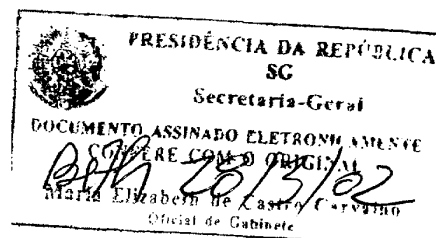 PRESIDÊNCIA DA REPÚBLICA
SG
Secretaria-Geral
DOCUMENTO ASSINADO ELETRONICAMENTE
CONFERE COM O ORIGINAL
Beth 28/5/02
Maria Elizabeth de Castro Carvalho
Oficial de Gabinete